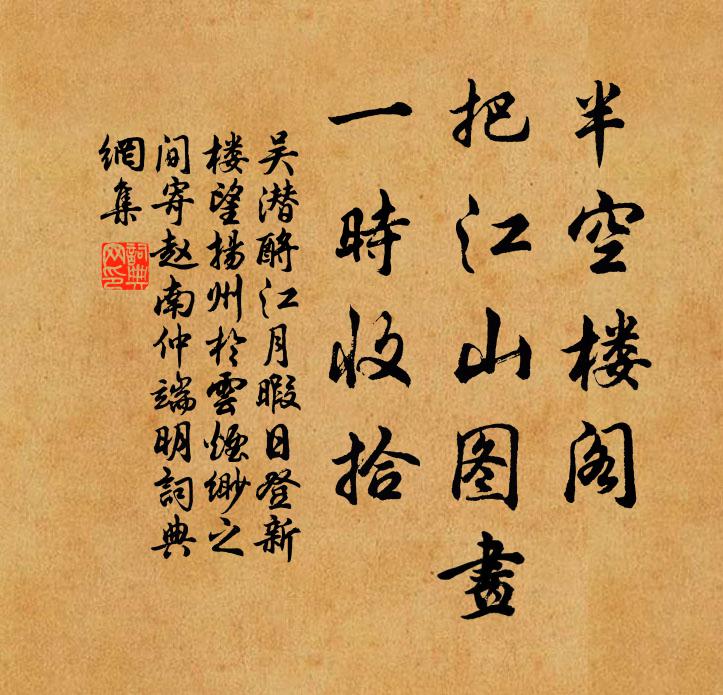 半空楼阁
把江山图畫
一時收拾
吴潜酹江月暇日登新
楼望揚州於雲烟缈之
间寄赵南仲端明詞典
網集
詞典
网印